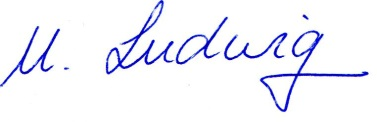 U. Ludwig